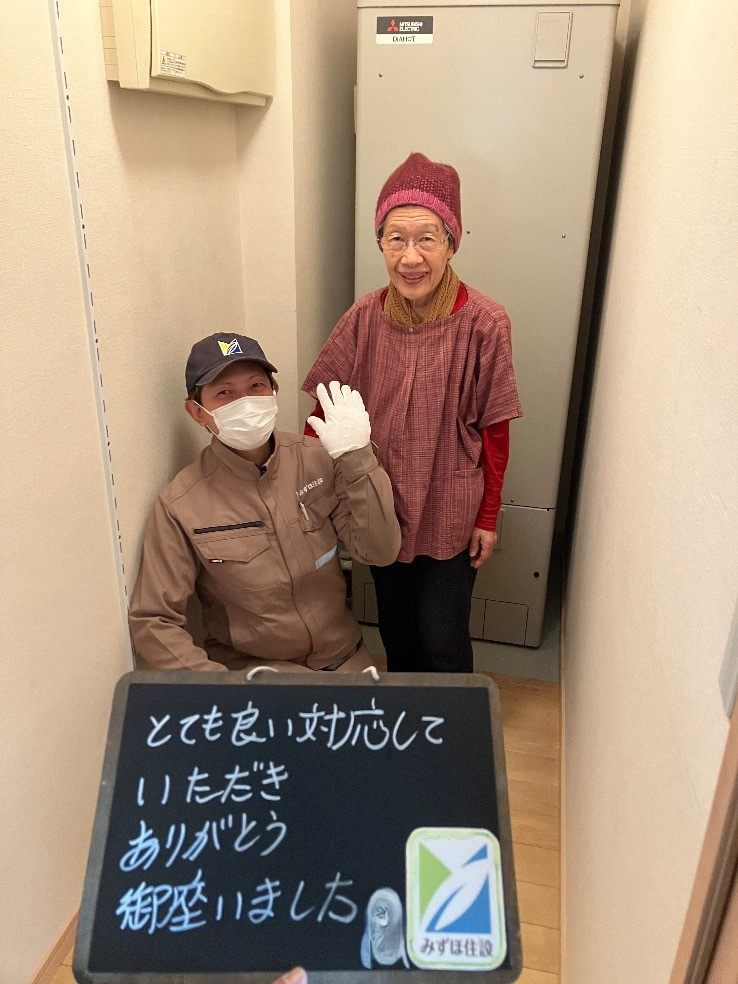 MITSUBISHI
ELECTRIC
DIAHOT
みずほ住設
とても良い対応して
いただき
ありがとう
御座いました
みずほ住設